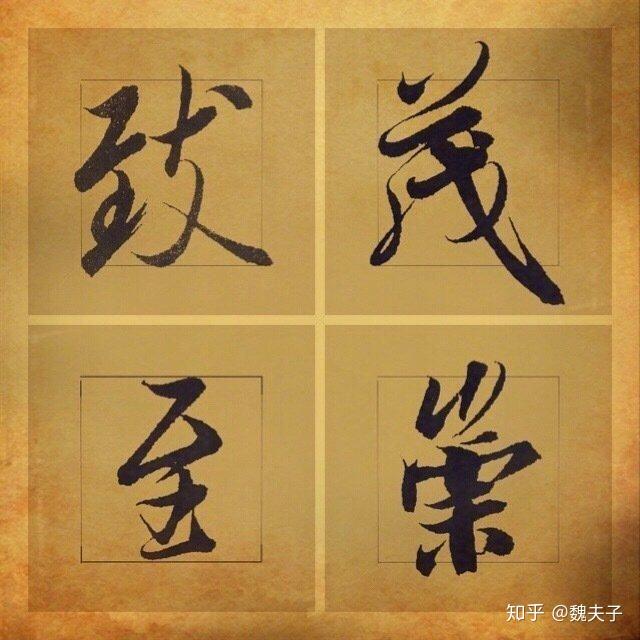 致茂
至崇
知乎 @魏夫子